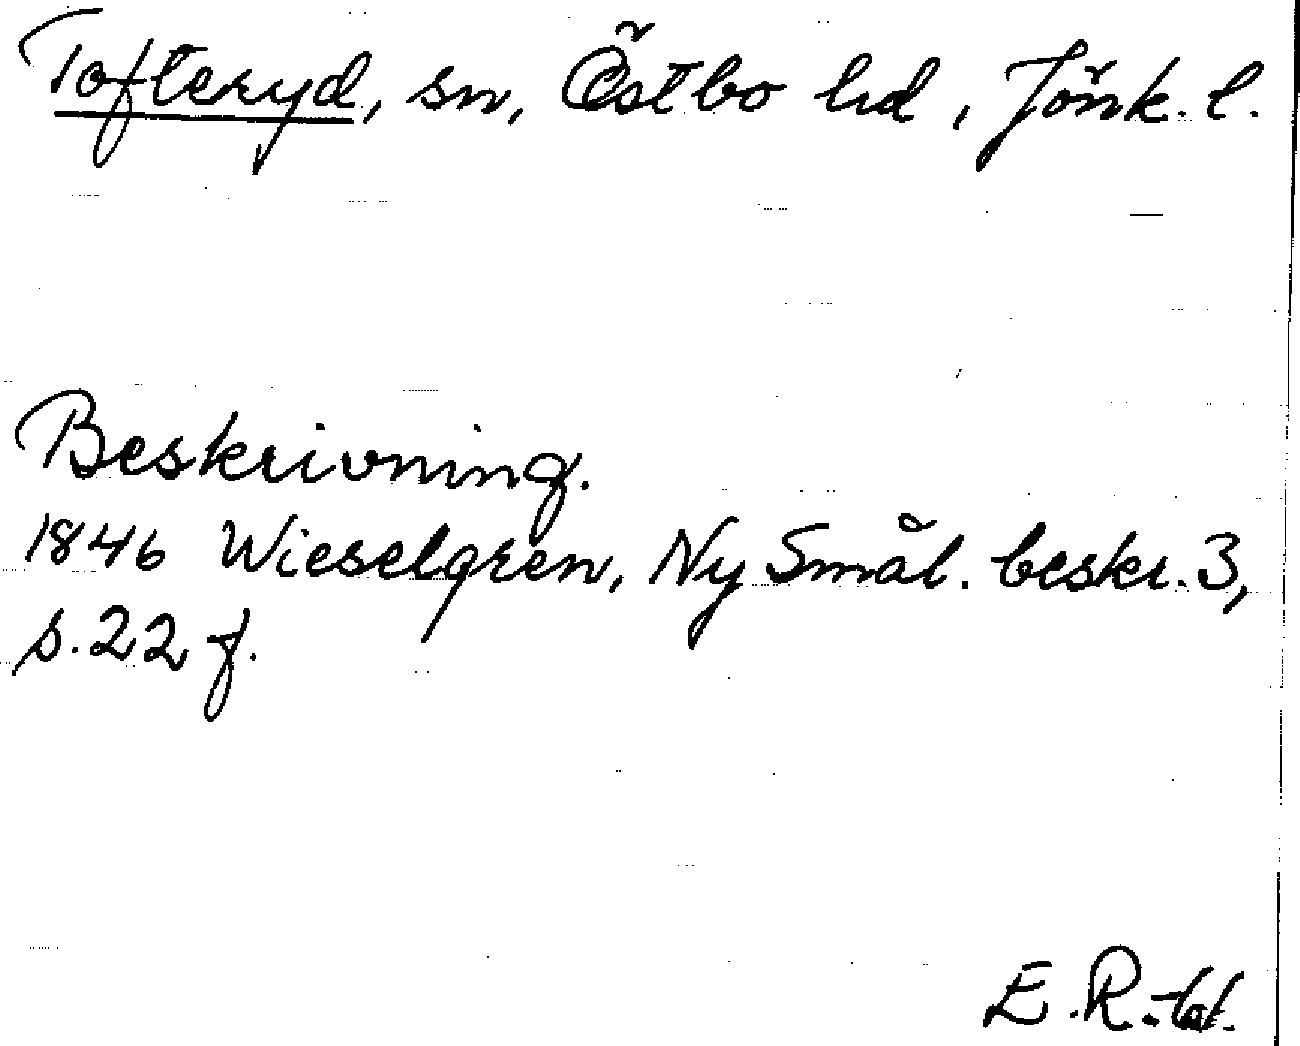 Tofteryd, sn, Östbo hd, Jönk. l.
Beskrivning.
1846 Wieselgren, Ny Smål. beskr. 3,
s. 22 f.
E. R.